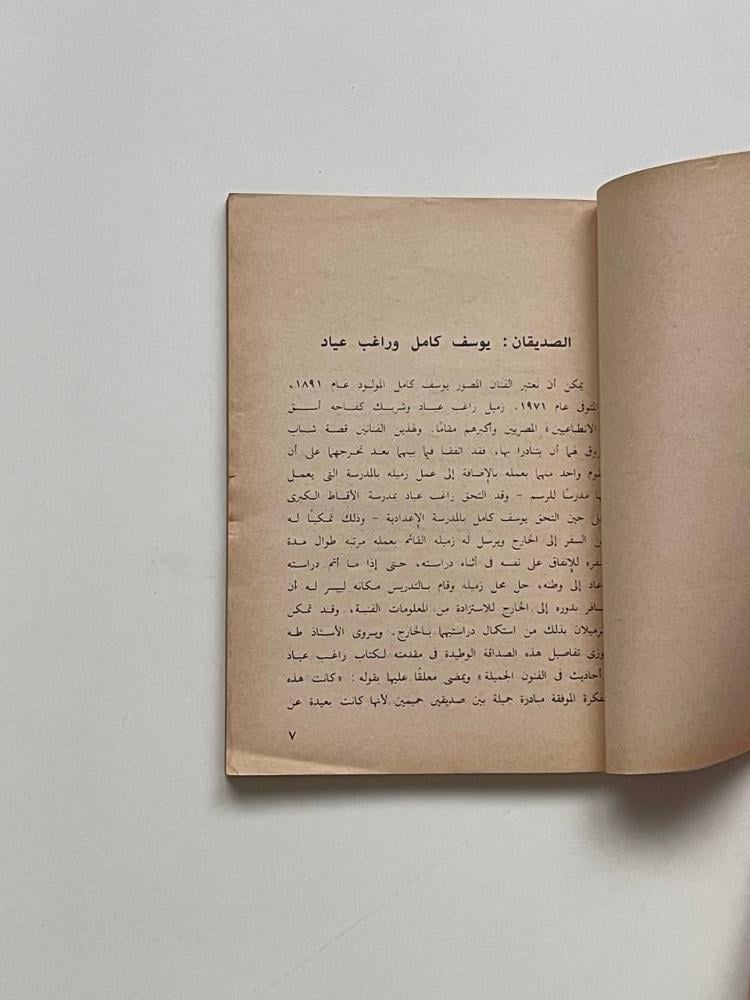 الصديقان : يوسف كامل وراغب عياد
يمكن أن نعتبر الفنان المصور يوسف كامل المولود عام ١٨٩١ ،
المتوفى عام ١٩٧١ ، زميل راغب عياد وشريك كفاحه أسبق
الانطباعيين » المصريين وأكبرهم مقامًا . ولهذين الفنانين قصة شباب
لهما أن يتنادرا بها ، فقد اتفقا فيما بينهما بعد تخرجهما على أن
واحد منهما بعمله بالإضافة إلى عمل زميله بالمدرسة التى يعمل
مدرسًا للرسم – وقد التحق راغب عياد بمدرسة الأقباط الكبرى
حين التحق يوسف كامل بالمدرسة الإعدادية – وذلك تمكينًا له
السفر إلى الخارج ويرسل له زميله القائم بعمله مرتبه طوال مدة
للإنفاق على نفسه فى أثناء دراسته ، حتى إذا ما أتم دراسته
عاد إلى وطنه ، حل محل زميله وقام بالتدريس مكانه ليسر له أن
بدوره إلى الخارج للاستزادة من المعلومات الفنية ، وقد تمكن
بذلك من استكمال دراستيهما بالخارج . ويروى الأستاذ طه
تفاصيل هذه الصداقة الوطيدة فى مقدمته لكتاب راغب عياد
أحاديث فى الفنون الجميلة » ويمضى معلقًا عليها بقوله : « كانت هذه
الموفقة مبادرة جميلة بين صديقين حميمين لأنها كانت بعيدة عن
٧